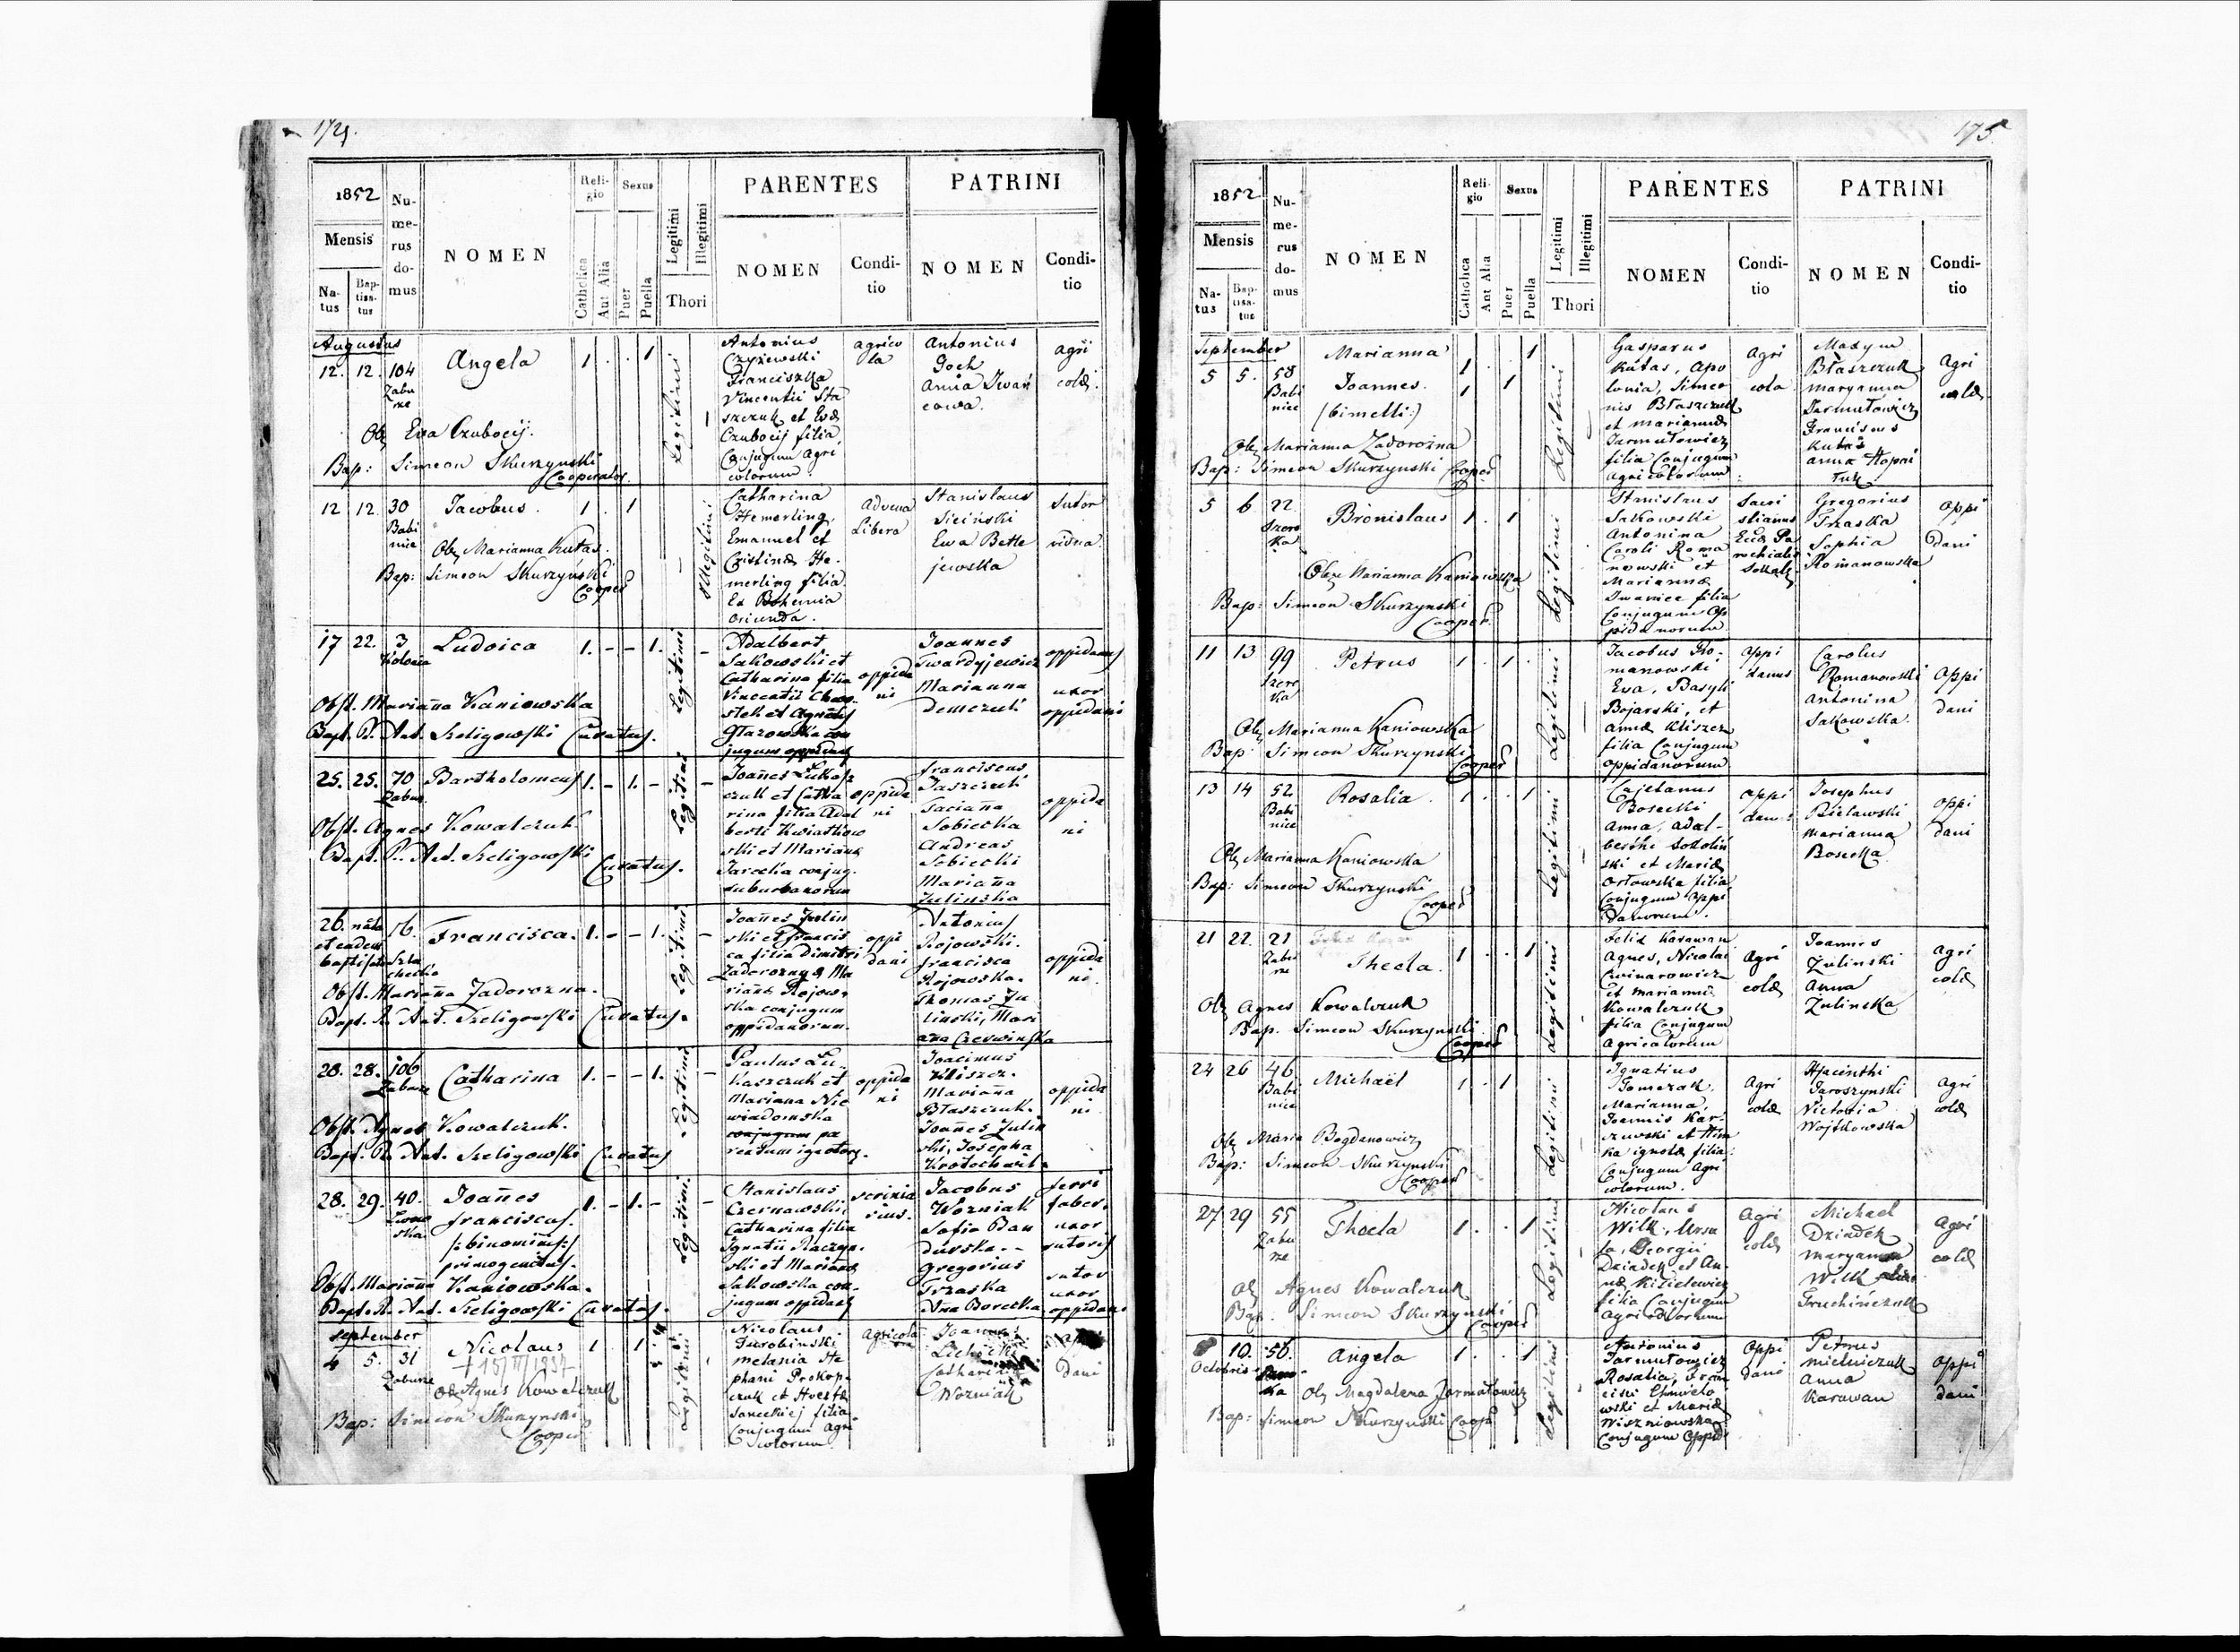 174.
1852
Mensis
Na-
tus
Bap-
tisa-
tus
Nu-
me-
rus
do-
mus
NOMEN
Reli-
gio
Catholica
Aut Alia
Sexus
Puer
Puella
Legitimi
Illegitimi
Thori
PARENTES
NOMEN
Condi-
tio
PATRINI
NOMEN
Condi-
tio
Augustus
12. 12. 104 Angela 1 . . 1
Zabu
rze
Obs Eva Czubocij.
Bap: Simeon Skurzynski
Cooperator.
Legitimi
Antonius
Czyzewski
Franciszka
Vincentii Sta
szczuk et Evæ
Czubocij filia
Conjugum Agri
colorum.
agrico
la
Antonius
Goch
Anna Iwań
cowa.
Agri
colæ.
12 12. 30 Jacobus. 1 . 1
Babi
nice
Obs Marianna Kutas.
Bap: Simeon Skurzyński
Cooper
Illegitimi
Catharina
Hemerling,
Emanuel et
Cristinæ He-
merling filia
Ex Bohemia
oriunda.
Advena
Libera
Stanislaus
Siciński
Ewa Bette
jewska
Sutor
vidua.
17 22. 3 Ludoica 1. - - 1.
Kolonia
Obst. Marianna Kaniowska
Bapt. R. Ad. Szeligowski Curatus.
Legitimi
Adalbert
Sakowski et
Catharina filia
Vincentii
et Agnetis
Głazowska con
jugum oppidan
oppida
ni
Joannes
Twardyjewicz
Marianna
Demczuk
oppidanus
uxor
oppidani
25. 25. 70 Bartholomeus 1. - 1. -
Zabuz
Obst. Agnes Kowalczuk.
Bapt. R. Ad. Szeligowski Curatus.
Legitimi
Joannes Lukasz
czuk et Catha
rina filia Adal
berti Kwiatkow
ski et Mariana
Jarecka conjug.
suburbanorum
oppida
ni
Franciscus
Jaszczuk
Taciana
Sobiecka
Andreas
Sobiecki
Marianna
Zulinska
oppida
ni
26. nata 16. Francisca. 1. - - 1.
et eadem Szla
baptisata checka
Obst. Marianna Zadorozna.
Bapt. R. Ad. Szeligowski Curatus.
Legitimi
Joannes Zulin
ski et Francis
ca filia Dimitri
Zadorozny & Ma
rianna Rojow-
ska conjugum
oppidanorum.
oppi
dani
Antonius
Rojowski.
Francisca
Rojowska.
Thomas Zu
linski, Mari
anna Czerwinska
oppida
ni.
28. 28. 106 Catharina 1. - - 1.
Zaburze
Obst. Agnes Kowalczuk.
Bapt. R. Ad. Szeligowski Curatus
Legitimi
Paulus Lu
kaszczuk et
Mariana Nie
wiadomska
conjugum pa
rentum ignotorz.
oppida
ni
Joacimus
Kliszcz.
Marianna
Błaszczuk.
Joannes Zulin
ski, Josepha
oppida
ni.
28. 29. 40. Joannes 1. - 1. -
Franciscus.
/: binominus:/
primogenitus.
Obst. Marianna Kaniowska.
Bapt. R. Ad. Szeligowski Curatus.
Legitimi
Stanislaus
Czernawski,
Catharina filia
Ignatii Raczyn-
ski et Marianna
Sakowska con-
jugum oppidan
scrinia
rius.
Jacobus
Wozniak
Sofia Ban
durska. --
Gregorius
Trzaska
Anna Borecka
ferri
faber.
uxor
sutoris
sutor
uxor
oppidani
September
4 5. 31 Nicolaus 1 . 1
Zaburze
Obs Agnes Kowalczuk
Bap: Simeon Skurzynski
Cooper
Legitimi
Nicolaus
Turobinski
Melania Ste
phani Prokop-
czuk et
Saneckiej filia
Conjugum Agri
colorum.
Agricola
Joannes
Catharina
Wozniak
dani
175
1852
Mensis
Na-
tus
Bap-
tisa-
tus
Nu-
me-
rus
do-
mus
NOMEN
Reli-
gio
Catholica
Aut Alia
Sexus
Puer
Puella
Legitimi
Illegitimi
Thori
PARENTES
NOMEN
Condi-
tio
PATRINI
NOMEN
Condi-
tio
September
5 5. 58 Marianna 1 . . 1
Babi
nice
Joannes. 1 . 1
(bimelli:)
Obs Marianna Zadorozna
Bap: Simeon Skurzynski Cooper
Legitimi
Gasparus
Kutas, Apo
lonia, Simeo
nis Błaszczuk
et Mariannæ
Jarmułowicz
filia Conjugum
agricolorum
Agri
cola
Maxym
Błaszczuk
Maryanna
Jarmułowicz
Franciscus
Kutas
Anna
Agri
colæ
5 6 22 Bronislaus 1. . 1
Szero
ka
Obs Marianna Kaniowska
Bap: Simeon Skurzynski
Cooper.
Legitimi
Stanislaus
Sakowski
Antonina
Caroli Roma
nowski et
Mariannæ
Iwanice filia
Conjugum Op
pidanorum
Sacri
stianus
Eccl. Pa
rochialis
Sokals
Gregorius
Trzaska
Sophia
Romanowska
Oppi
dani
11 13 99 Petrus 1 . 1.
Szero
ka
Obs Marianna Kaniowska
Bap: Simeon Skurzynski
Cooper
Legitimi
Jacobus Ro-
manowski
Eva, Basyli
Bojarski, et
Annæ Kliszcz
filia Conjugum
oppidanorum
oppi
danus
Carolus
Romanowski
Antonina
Sakowska.
Oppi
dani
13 14 52 Rosalia. 1. . . 1
Babi
nice
Obs Marianna Kaniowska
Bap: Simeon Skurzynski
Cooper
Legitimi
Cajetanus
Bosecki
Anna, Adal-
berthi Sokoliń
ski et Mariæ
Orłowska filia
Conjugum Oppi
danorum.
oppi
danus
Josephus
Bielawski
Marianna
Bosecka
oppi
dani
21 22. 21 Thecla. 1 . . 1
Zabu
rze
Obs Agnes Kowalczuk
Bap. Simeon Skurzynski
Cooper
Legitimi
Felix Karawan
Agnes, Nicolai
Cwinarowicz
et Mariannæ
Kowalczuk
filia Conjugum
Agricolorum
Agri
colæ
Joannes
Zulinski
Anna
Zulinska
Agri
colæ
24 26 46 Michaël 1 . 1
Babi
nice
Obs Maria Bogdanowicz
Bap: Simeon Skurzynski
Cooper
Legitimi
Ignatius
Tomczak
Marianna,
Joannis Kar-
czewski et
ka ignotæ filia:
Conjugum Agri
colorum.
Agri
colæ
Hyacinthi
Jaroszynski
Victoria
Wojtkowska
Agri
colæ
27 29 55 Thecla 1. . . 1
Zabu
rze
Obs Agnes Kowalczuk
Bap. Simeon Skurzynski
Cooper
Legitimi
Nicolaus
Wilk, Ursu
la, Georgii
Dziadek et An-
næ Kisielewicz
filia Conjugum
Agricolorum
Agri
colæ
Michael
Dziadek
Maryanna
Wilk
Agri
colæ
10. 56. Angela 1. . . 1
Octobris
Obs Magdalena Jarmułowicz
Bap: Simeon Skurzynski Coop
Legitimi
Antonius
Jarmułowicz
Rosalia, Fran
cisci Chmielo
wski et Mariæ
Wiszniowska
Conjugum Oppid
Oppi
dani
Petrus
Mielniczuk
Anna
Karawan
Oppi
dani